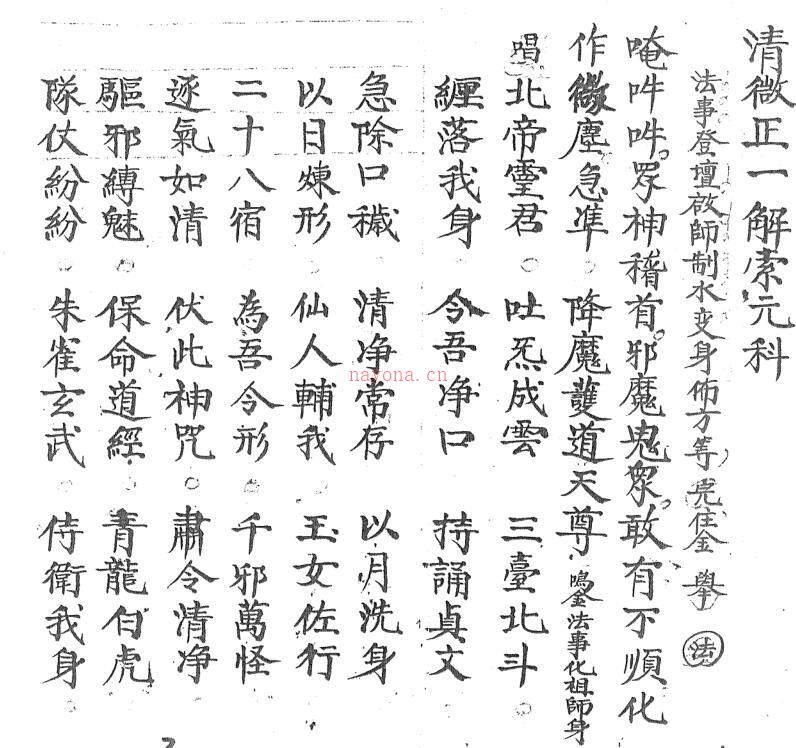 清微正一解索元科
法事登壇啟師制水变身佈方等完住金 舉 法
唵吽吽。眾神稽首。邪魔鬼眾。敢有不順化
作微塵急準 降魔護道天尊 鳴金法事化祖師身
唱北帝靈君。吐炁成雲 三臺北斗。
纏落我身 令吾净口 持誦真文
急除口穢 清净常存 以月洗身
以日煉形 仙人輔我 玉女佐行
二十八宿 為吾令形 千邪萬怪
逐氣如清 伏此神咒 肅令清净
驅邪縛魅 保命道經 青龍白虎
隊仗紛紛 朱雀玄武 侍衛我身
nayona.cn